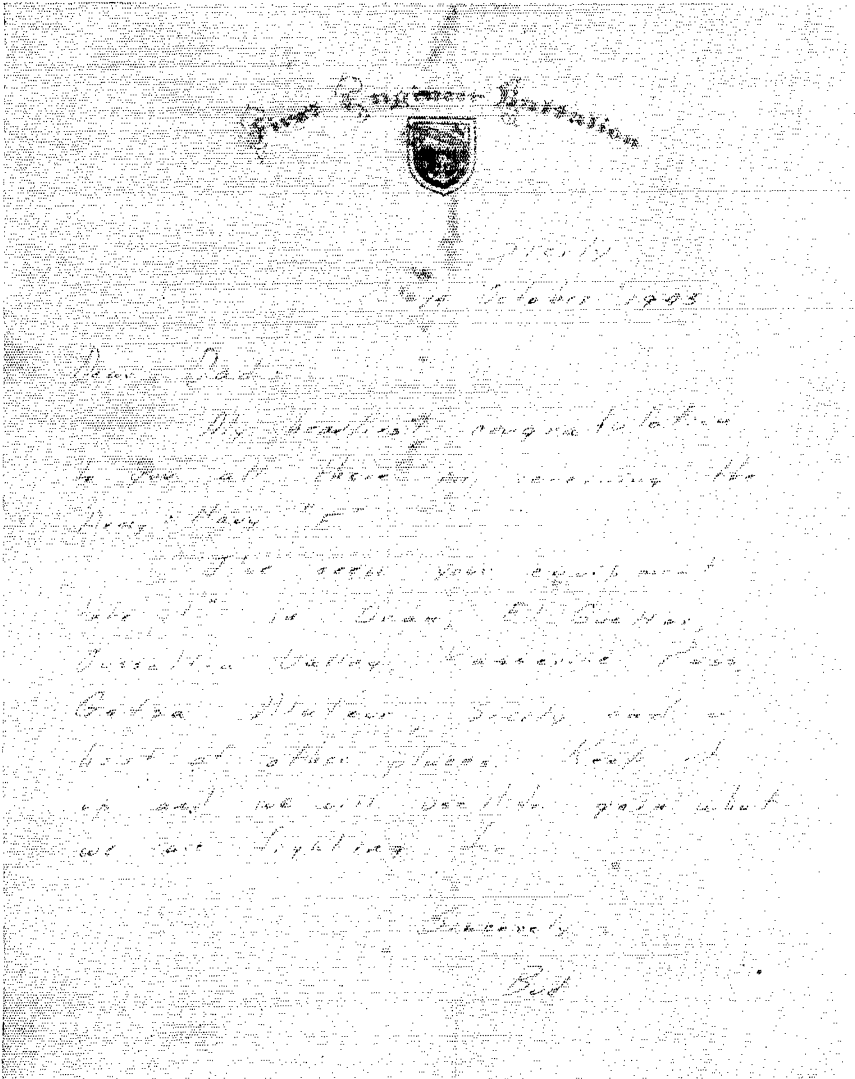 First Engineer Battalion
Sicily
14 October 1943
Dear Dad:
My heartiest congratulation
to you all there on receiving the
Army & Navy "E"
I've seen your equipment
in Oran, El Guettar,
Ousseltia Valley, Kasserine Pass,
Gafsa, Mateur, Sicily and a
host of other places. Keep it
up and we will gain what
we are fighting for.
Sincerely,
Bud